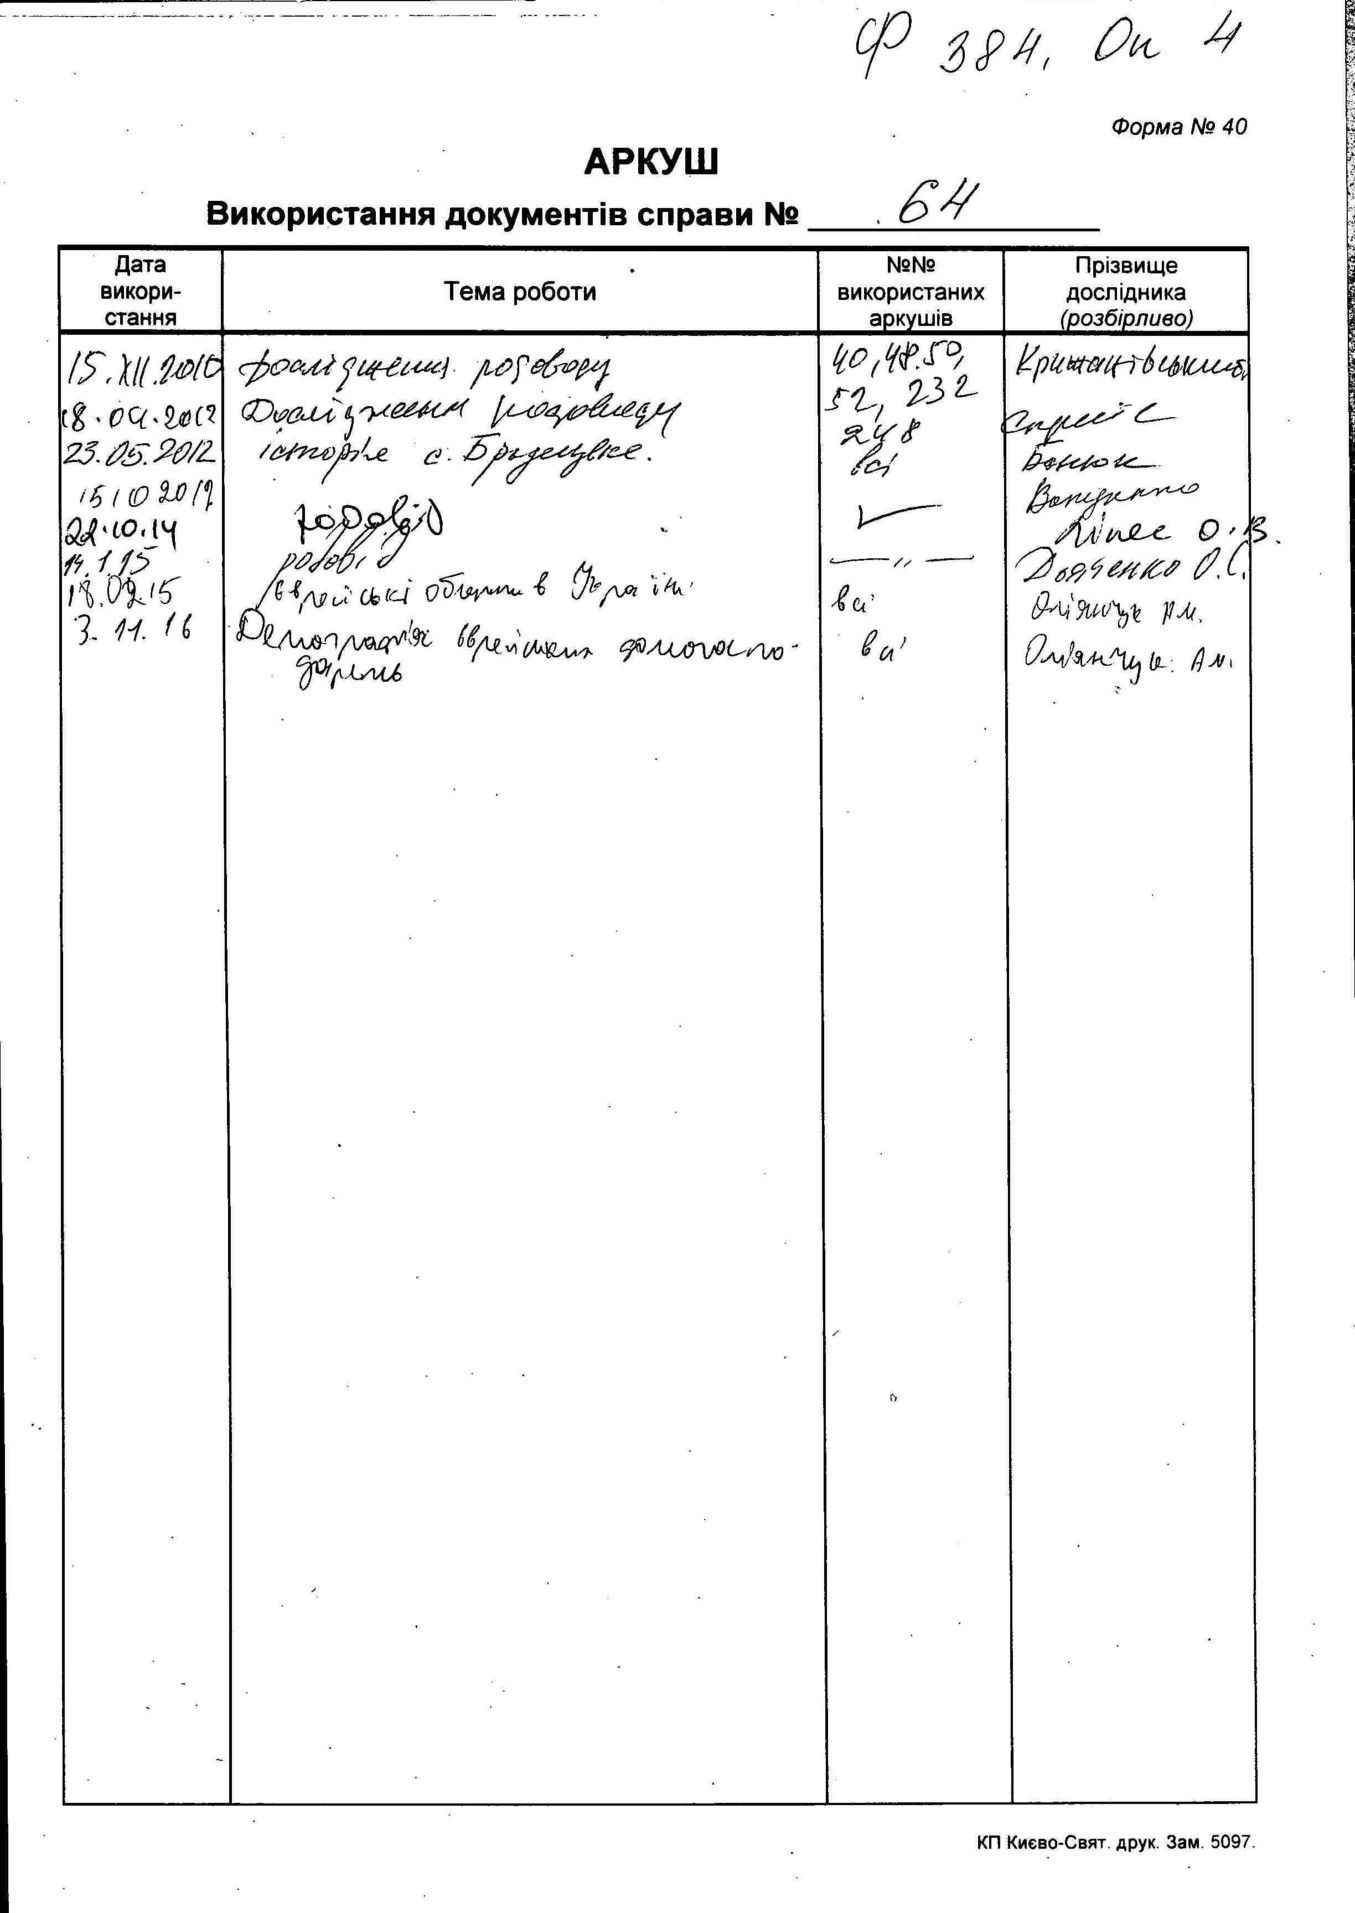 Ф 384, Оп 4
Форма № 40
АРКУШ
Використання документів справи № 64
Дата використання
Тема роботи
№№ використаних аркушів
Прізвище дослідника (розбірливо)
15.XII.2010 Дослідження родоводу 40, 48.50, Крижанівський
52, 232
18.04.2012 Дослідження родоводу 248
23.05.2012 історія с. всі Бонюк
15 10 2012
22.10.14 родовід О.В.
14.1.15 родовід —„— Дьяченко О.С.
18.02.15 Єврейські общини в Україні всі Оліянчук А.М.
3.11.16 Демографія єврейських домогоспо- всі Оліянчук А.М.
дарень
КП Києво-Свят. друк. Зам. 5097.